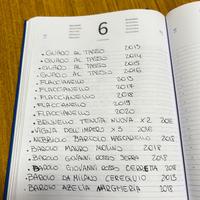 6
• GUADO AL TASSO 2013
• GUADO AL TASSO 2014
• GUADO AL TASSO 2015
• GUADO AL TASSO 2016
• FLACCIANELLO 2015
• FLACCIANELLO 2017
• FLACCIANELLO 2018
• FLACCIANELLO 2019
• FLACCIANELLO 2020
• BRUNELLO TENUTA NUOVA X2
• VIGNA DELL'IMPERO X3 2016
• NEBBIOLO BARTOLO MASCARELLO 2018
• BAROLO MAURO MOLINO 2018
• BAROLO GIOVANNI ROSSO SERRA 2018
• BAROLO GIOVANNI ROSSO CERRETTA 2018
• BAROLO DAMILANO CEREQUIO 2015
• BAROLO ABELIA MARGHERIA 2018